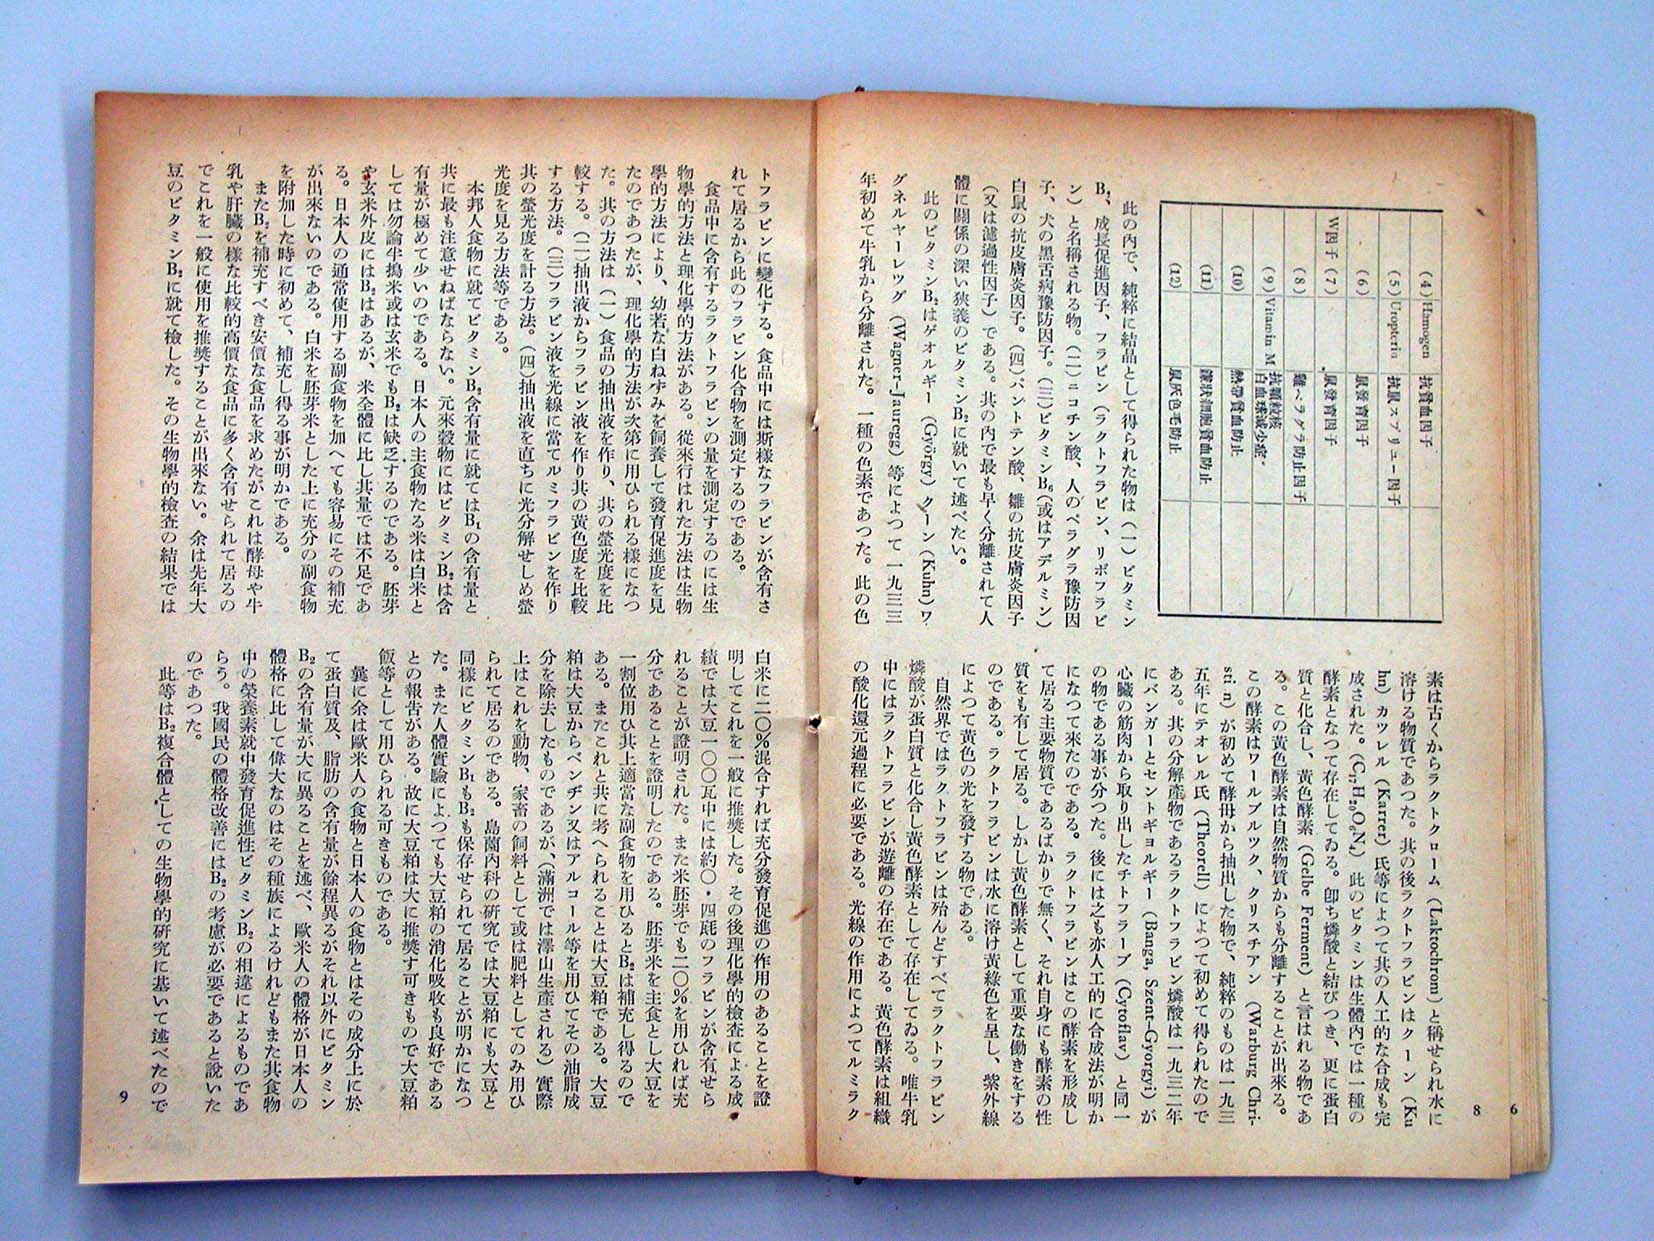 (4) Hamogen 抗貧血因子
(5) Uropterin 抗鼠スプリュー因子
(6) 鼠發育因子
W因子 (7) 鼠發育因子
(8) 雞ペラグラ防止因子
(9) Vitamin M 抗顆粒核白血球減少症
(10) 熱帶貧血防止
(11) 鎌狀細胞貧血防止
(12) 鼠灰色毛防止
此の內で、純粹に結晶として得られた物は(一)ビタミン
B₂、成長促進因子、フラビン(ラクトフラビン、リボフラビ
ン)と名稱される物。(二)ニコチン酸、人のペラグラ豫防因
子、犬の黑舌病豫防因子。(三)ビタミンB₆(或はアデルミン)
白鼠の抗皮膚炎因子。(四)パントテン酸、雛の抗皮膚炎因子
(又は濾過性因子)である。其の內で最も早く分離されて人
體に關係の深い狹義のビタミンB₂に就いて述べたい。
此のビタミンB₂はゲオルギー(György)クーン(Kuhn)ワ
グネルヤーレッグ(Wagner-Jauregg)等によつて一九三三
年初めて牛乳から分離された。一種の色素であつた。此の色
素は古くからラクトクローム(Laktochrom)と稱せられ水に
溶ける物質であつた。其の後ラクトフラビンはクーン(Ku
hn)カツレル(Karrer)氏等によつて其の人工的な合成も完
成された。(C₁₇H₂₀O₆N₄)此のビタミンは生體內では一種の
酵素となつて存在してゐる。卽ち燐酸と結びつき、更に蛋白
質と化合し、黃色酵素(Gelbe Ferment)と言はれる物であ
る。この黃色酵素は自然物質からも分離することが出來る。
この酵素はワールブルツク、クリスチアン(Warburg Chri-
sti. n)が初めて酵母から抽出した物で、純粹のものは一九三
五年にテオレル氏(Theorell)によつて初めて得られたので
ある。其の分解產物であるラクトフラビン燐酸は一九三二年
にバンガーとセントギョルギー(Banga, Szent-Gyorgyi)が
心臟の筋肉から取り出したチトフラーブ(Cytoflav)と同一
の物である事が分つた。後には之も亦人工的に合成法が明か
になつて來たのである。ラクトフラビンはこの酵素を形成し
て居る主要物質であるばかりで無く、それ自身にも酵素の性
質をも有して居る。しかし黃色酵素として重要な働きをする
のである。ラクトフラビンは水に溶け黃綠色を呈し、紫外線
によつて黃色の光を發する物である。
自然界ではラクトフラビンは殆んどすべてラクトフラビン
燐酸が蛋白質と化合し黃色酵素として存在してゐる。唯牛乳
中にはラクトフラビンが遊離の存在である。黃色酵素は組織
の酸化還元過程に必要である。光線の作用によつてルミラク
8
6
トフラビンに變化する。食品中には斯樣なフラビンが含有さ
れて居るから此のフラビン化合物を測定するのである。
食品中に含有するラクトフラビンの量を測定するのには生
物學的方法と理化學的方法がある。從來行はれた方法は生物
學的方法により、幼若な白ねずみを飼養して發育促進度を見
たのであつたが、理化學的方法が次第に用ひられる樣になつ
た。其の方法は(一)食品の抽出液を作り、其の螢光度を比
較する。(二)抽出液からフラビン液を作り其の黃色度を比較
する方法。(三)フラビン液を光線に當てルミフラビンを作り
其の螢光度を計る方法。(四)抽出液を直ちに光分解せしめ螢
光度を見る方法等である。
本邦人食物に就てビタミンB₂含有量に就てはB₁の含有量と
共に最も注意せねばならない。元來穀物にはビタミンB₂は含
有量が極めて少いのである。日本人の主食物たる米は白米と
しては勿論半搗米或は玄米でもB₂は缺乏するのである。胚芽
や玄米外皮にはB₂はあるが、米全體に比し其量では不足であ
る。日本人の通常使用する副食物を加へても容易にその補充
が出來ないのである。白米を胚芽米とした上に充分の副食物
を附加した時に初めて、補充し得る事が明かである。
またB₂を補充すべき安價な食品を求めたがこれは酵母や牛
乳や肝臟の樣な比較的高價な食品に多く含有せられて居るの
でこれを一般に使用を推奬することが出來ない。余は先年大
豆のビタミンB₂に就て檢した。その生物學的檢查の結果では
白米に二〇%混合すれば充分發育促進の作用のあることを證
明してこれを一般に推奬した。その後理化學的檢查による成
績では大豆一〇〇瓦中には約〇・四瓱のフラビンが含有せら
れることが證明された。また米胚芽でも二〇%を用ひれば充
分であることを證明したのである。胚芽米を主食とし大豆を
一割位用ひ其上適當な副食物を用ひるとB₂は補充し得るので
ある。またこれと共に考へられることは大豆粕である。大豆
粕は大豆からベンヂン又はアルコール等を用ひてその油脂成
分を除去したものであるが、(滿洲では澤山生產される)實際
上はこれを動物、家畜の飼料として或は肥料としてのみ用ひ
られて居るのである。島薗內科の研究では大豆粕にも大豆と
同樣にビタミンB₁もB₂も保存せられて居ることが明かになつ
た。また人體實驗によつても大豆粕の消化吸收も良好である
との報告がある。故に大豆粕は大に推奬す可きもので大豆粕
飯等として用ひられる可きものである。
曩に余は歐米人の食物と日本人の食物とはその成分上に於
て蛋白質及、脂肪の含有量が餘程異るがそれ以外にビタミン
B₂の含有量が大に異ることを述べ、歐米人の體格が日本人の
體格に比して偉大なのはその種族によるけれどもまた其食物
中の榮養素就中發育促進性ビタミンB₂の相違によるものであ
らう。我國民の體格改善にはB₂の考慮が必要であると說いた
のであつた。
此等はB₂複合體としての生物學的硏究に基いて述べたので
9